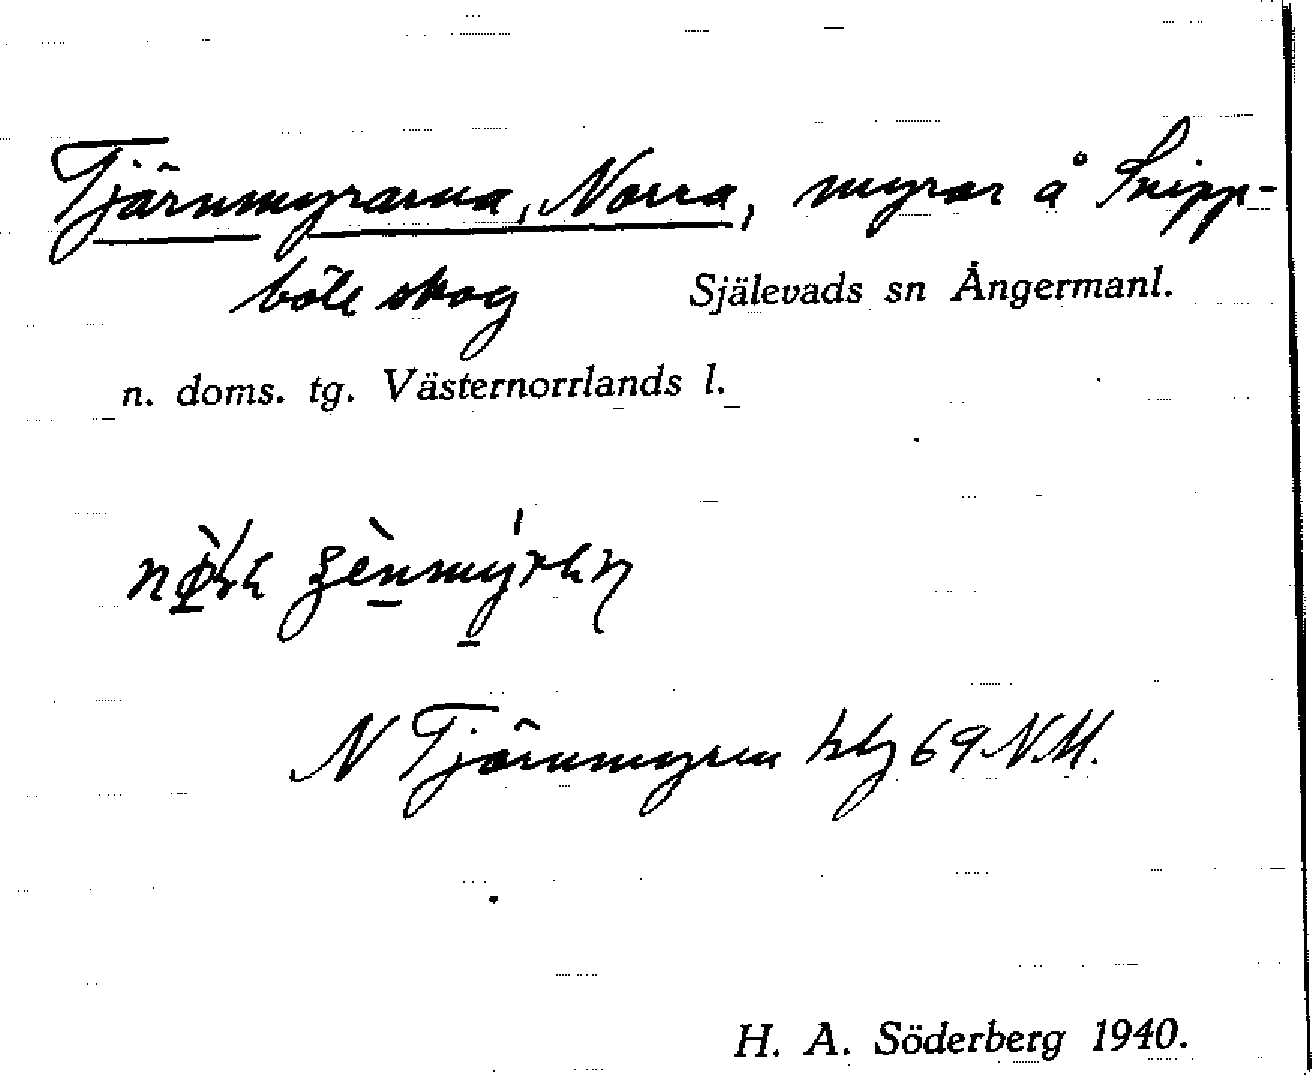 Tjärnmyrarna, Norra, myrar å Snipp-
böle skog Själevads sn Ångermanl.
n. doms. tg. Västernorrlands l.
N Tjärnmyren hbg 69 NM.
H. A. Söderberg 1940.